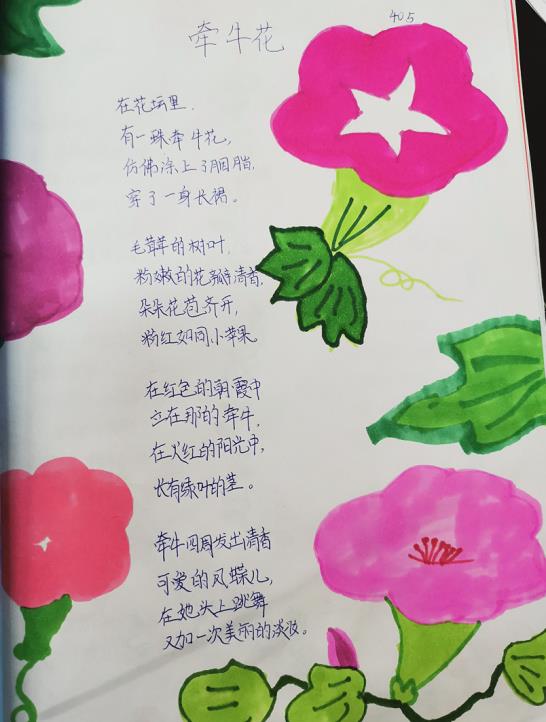 405
牵牛花
在花坛里,
有一株牵牛花,
仿佛涂上了胭脂,
穿了一身长裙。
毛茸茸的树叶,
粉嫩的花瓣清香,
朵朵花苞齐开,
粉红如同小苹果。
在红色的朝霞中
立在那的牵牛,
在火红的阳光中,
长有绿叶的茎。
牵牛四周发出清香
可爱的凤蝶儿,
在她头上跳舞
又加一次美丽的淡妆。